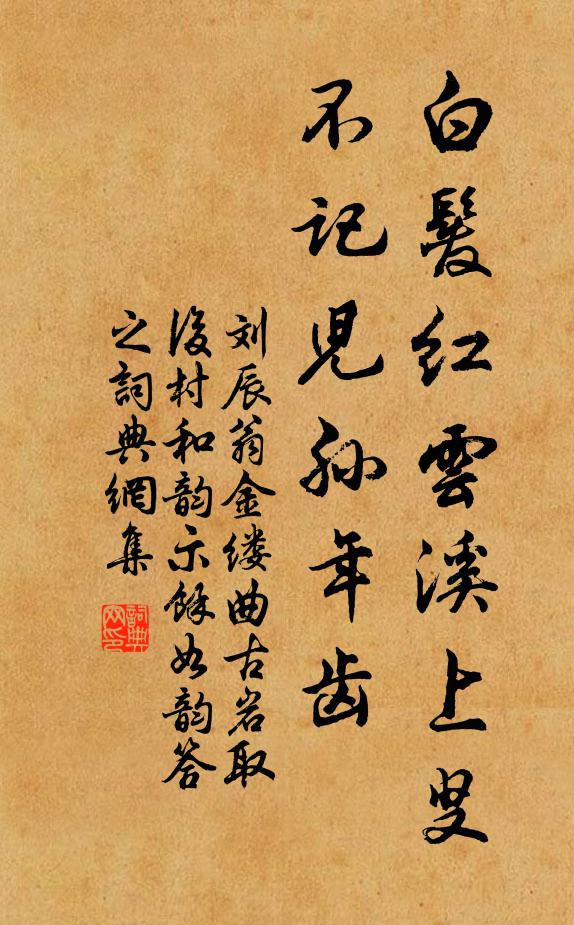 白髮红雲溪上叟
不记児孙年齿
刘辰翁金缕曲古岩取
後村和韵示馀如韵答
之詞典網集
詞典网印